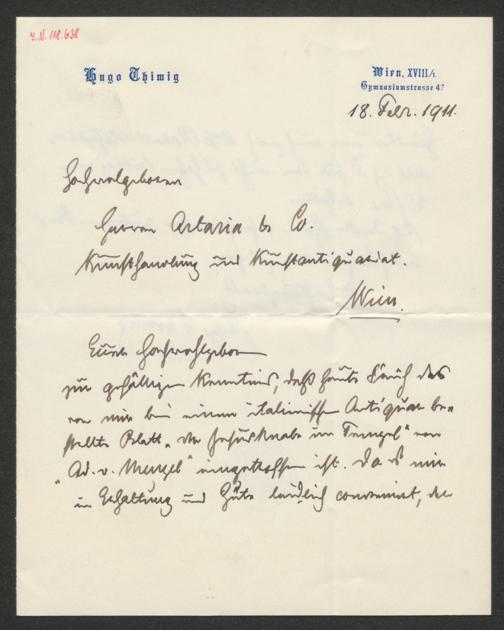 I.N. 118.638
Hugo Thimig
Wien, XVIII/1.
Gymnasiumstrasse 47
18. Febr. 1911.
Hochwolgeboren
Herren Artaria & Co.
Kunsthandlung und Kunstantiquariat.
Wien.
Euer Hochwohlgeboren
zur gefälligen Kenntnis, daß heute früh das
von mir bei einem italienischen Antiquar be-
stellte Blatt „Der Jesusknabe im Tempel" von
"Ad. v. Menzel" eingetroffen ist. Da es mir
in Erhaltung und Güte convenirt, der